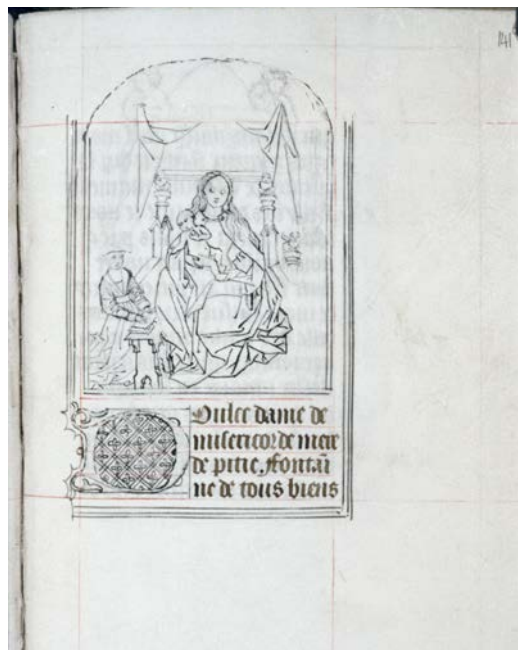 141
Dulce dame de
misericorde mere
de pitie. ffontaī
ne de tous biens